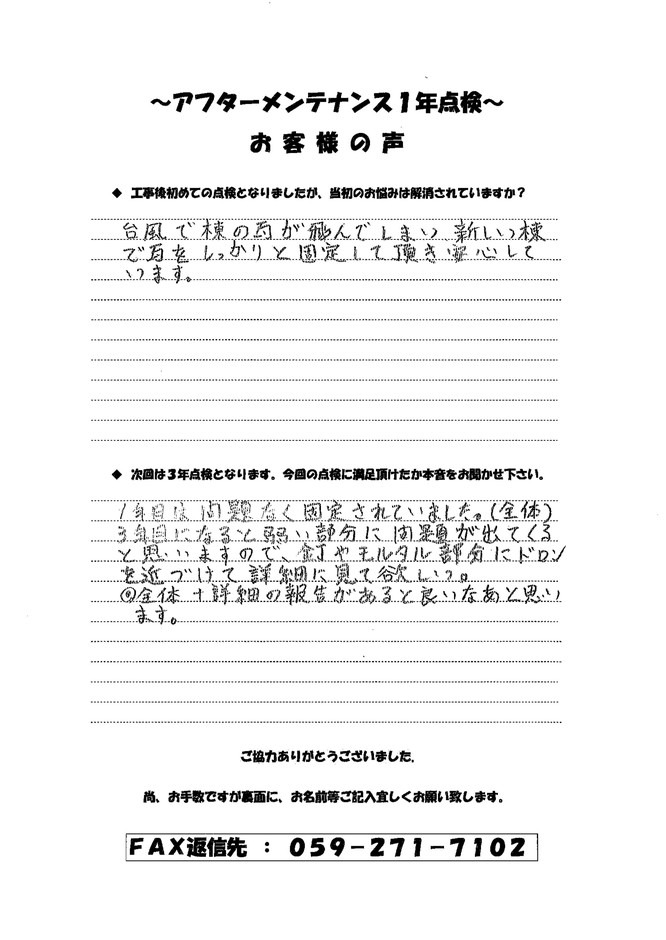 ～アフターメンテナンス1年点検～
お客様の声
◆ 工事後初めての点検となりましたが、当初のお悩みは解消されていますか？
台風で棟の瓦が飛んでしまい 新しい棟
で瓦をしっかりと固定して頂き安心して
います。
◆ 次回は3年点検となります。今回の点検に満足頂けたか本音をお聞かせ下さい。
1年目は問題なく固定されていました。(全体)
3年目になると弱い部分に問題が出てくる
と思いますので、釘やモルタル部分にドロン
を近づけて詳細に見て欲しい。
◎全体+詳細の報告があると良いなあと思い
ます。
ご協力ありがとうございました。
尚、お手数ですが裏面に、お名前等ご記入宜しくお願い致します。
FAX返信先 ： 059-271-7102